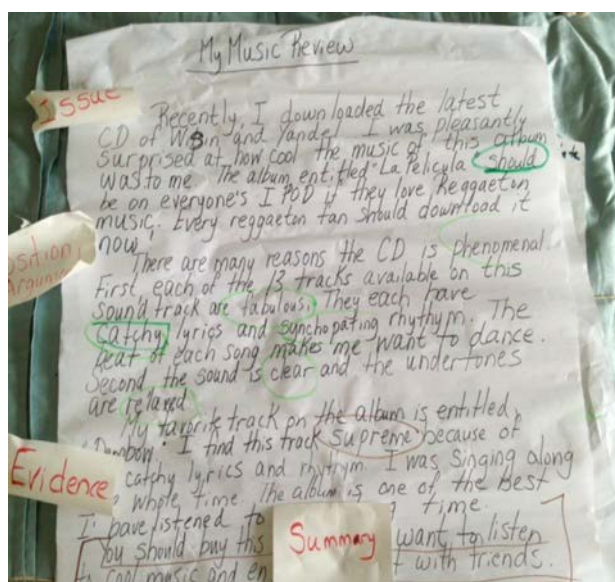 My Music Review
Issue
Recently, I downloaded the latest
CD of Wisin and Yandel I was pleasantly
surprised at how cool the music of this album
was to me The album entitled "La Pelicula should
be on everyone's I POD if they love Reggaeton
music. Every reggaeton fan should download it
now!
Position
Argument
There are many reasons the CD is phenomenal.
First, each of the 13 tracks available on this
sound track are fabulous. They each have
catchy lyrics and synchopating rhythym. The
beat of each song makes me want to dance.
Second the sound is clear and the undertones
are relaxed
My favorite track on the album is entitled
I find this track supreme because of
Evidence
catchy lyrics and rhythm I was singing along
whole time. The album is one of the best
I have listened to time.
Summary
You should buy this want to listen
cool music and with friends.